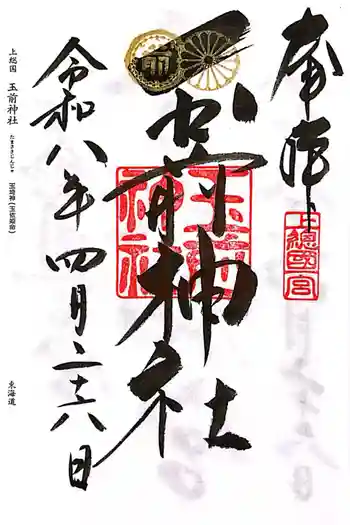 奉拝
上總國一宮
玉前神社
玉前神社
令和八年四月二十八日
上総国 玉前神社
たまさきじんじゃ
玉﨑神(玉依姫命)
東海道